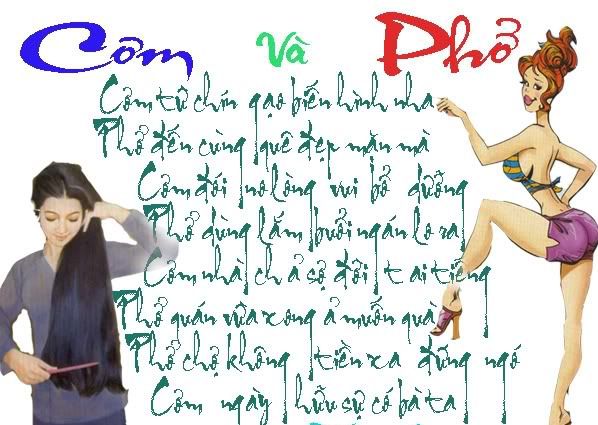 Cơm Và Phở
Cơm từ chín gạo biến hình nha
Phở đến cùng quê đẹp mặn mà
Cơm đói no lòng vui bổ dưỡng
Phở dùng lắm buổi ngán lo ra
Cơm nhà chả sợ đời tai tiếng
Phở quán vừa xong ả muốn quà
Phở chợ không tiền xa đừng ngó
Cơm ngày hữu sự có bà ta